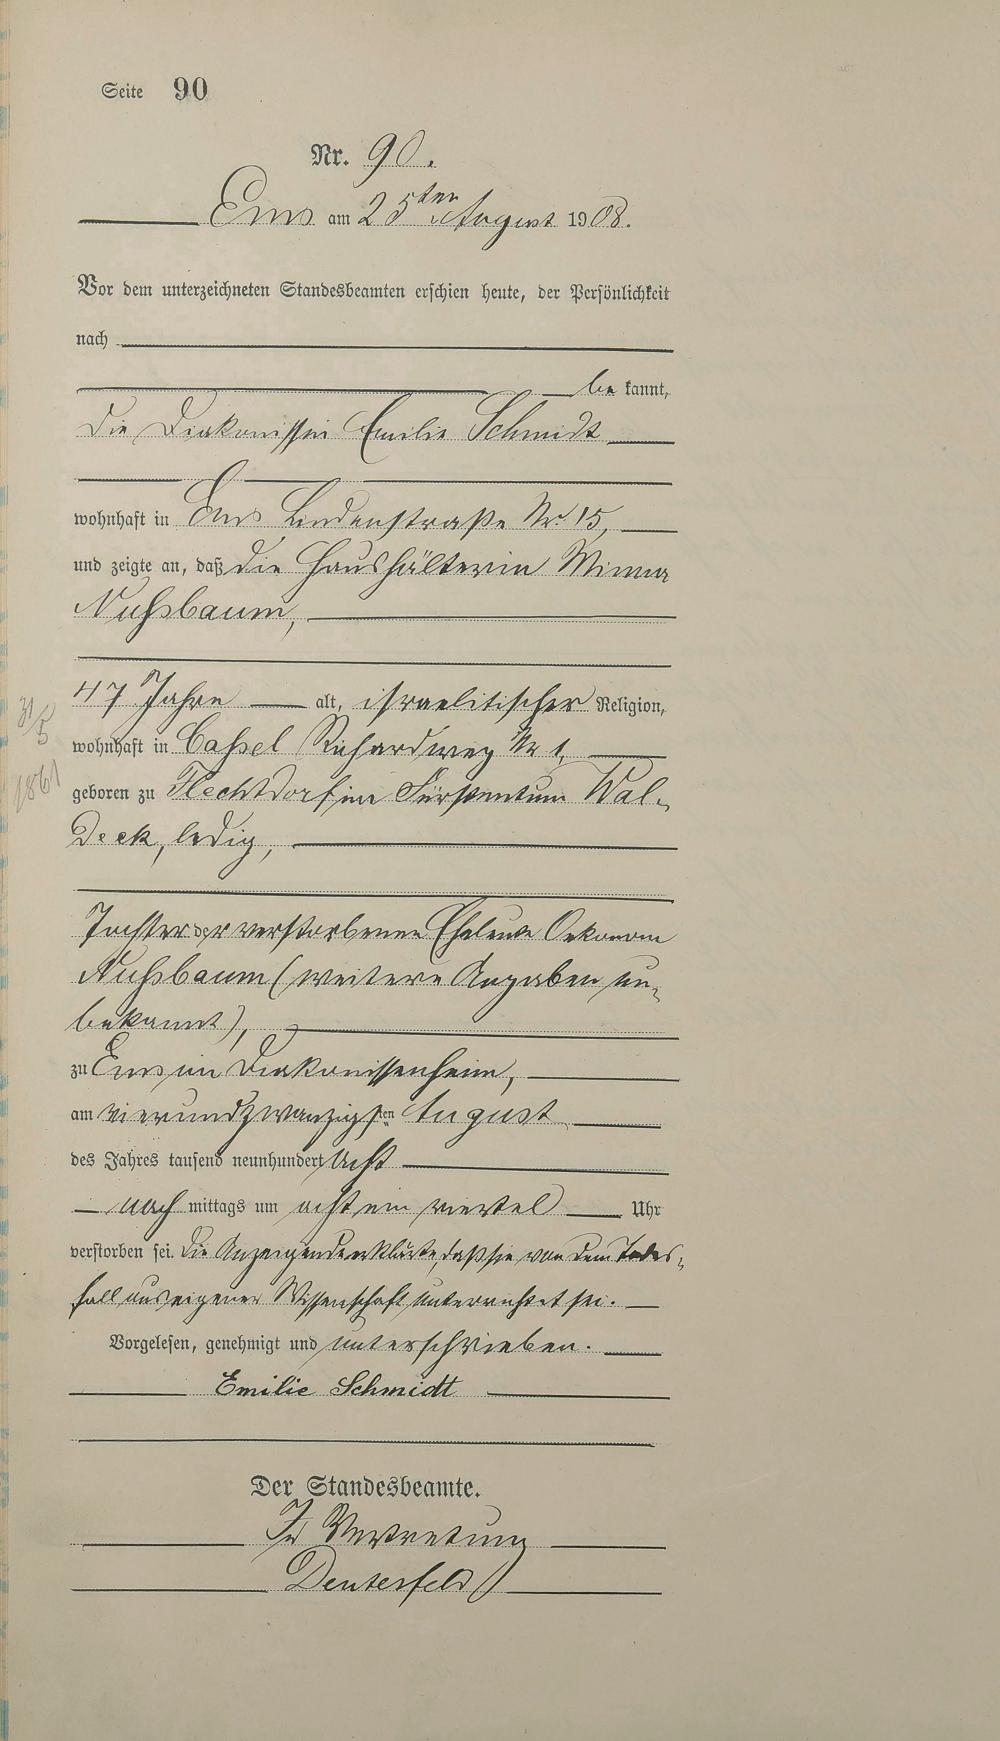 Seite 90
Nr. 90.
Ems am 25ten August 1908.
Vor dem unterzeichneten Standesbeamten erschien heute, der Persönlichkeit
nach
be kannt,
die Diakonissin Emilie Schmidt
wohnhaft in Ems Lindenstraße Nr. 15,
und zeigte an, daß die Haushälterin Minna
Nußbaum,
47 Jahre alt, israelitischer Religion,
31/5
wohnhaft in Cassel Richardweg Nr 1,
1861
geboren zu Flechtdorf im Fürstentum Wal-
deck, ledig,
Tochter der verstorbenen Eheleute Oekonom
Nußbaum (weitere Angaben un-
bekannt),
zu Ems im Diakonissenheim,
am vierundzwanzigsten August
des Jahres tausend neunhundert acht
nach mittags um acht ein viertel Uhr
verstorben sei. Die Anzeigende erklärte, daß sie von dem Todes-
fall aus eigener Wissenschaft unterrichtet sei.
Vorgelesen, genehmigt und unterschrieben.
Emilie Schmidt
Der Standesbeamte.
In Vertretung